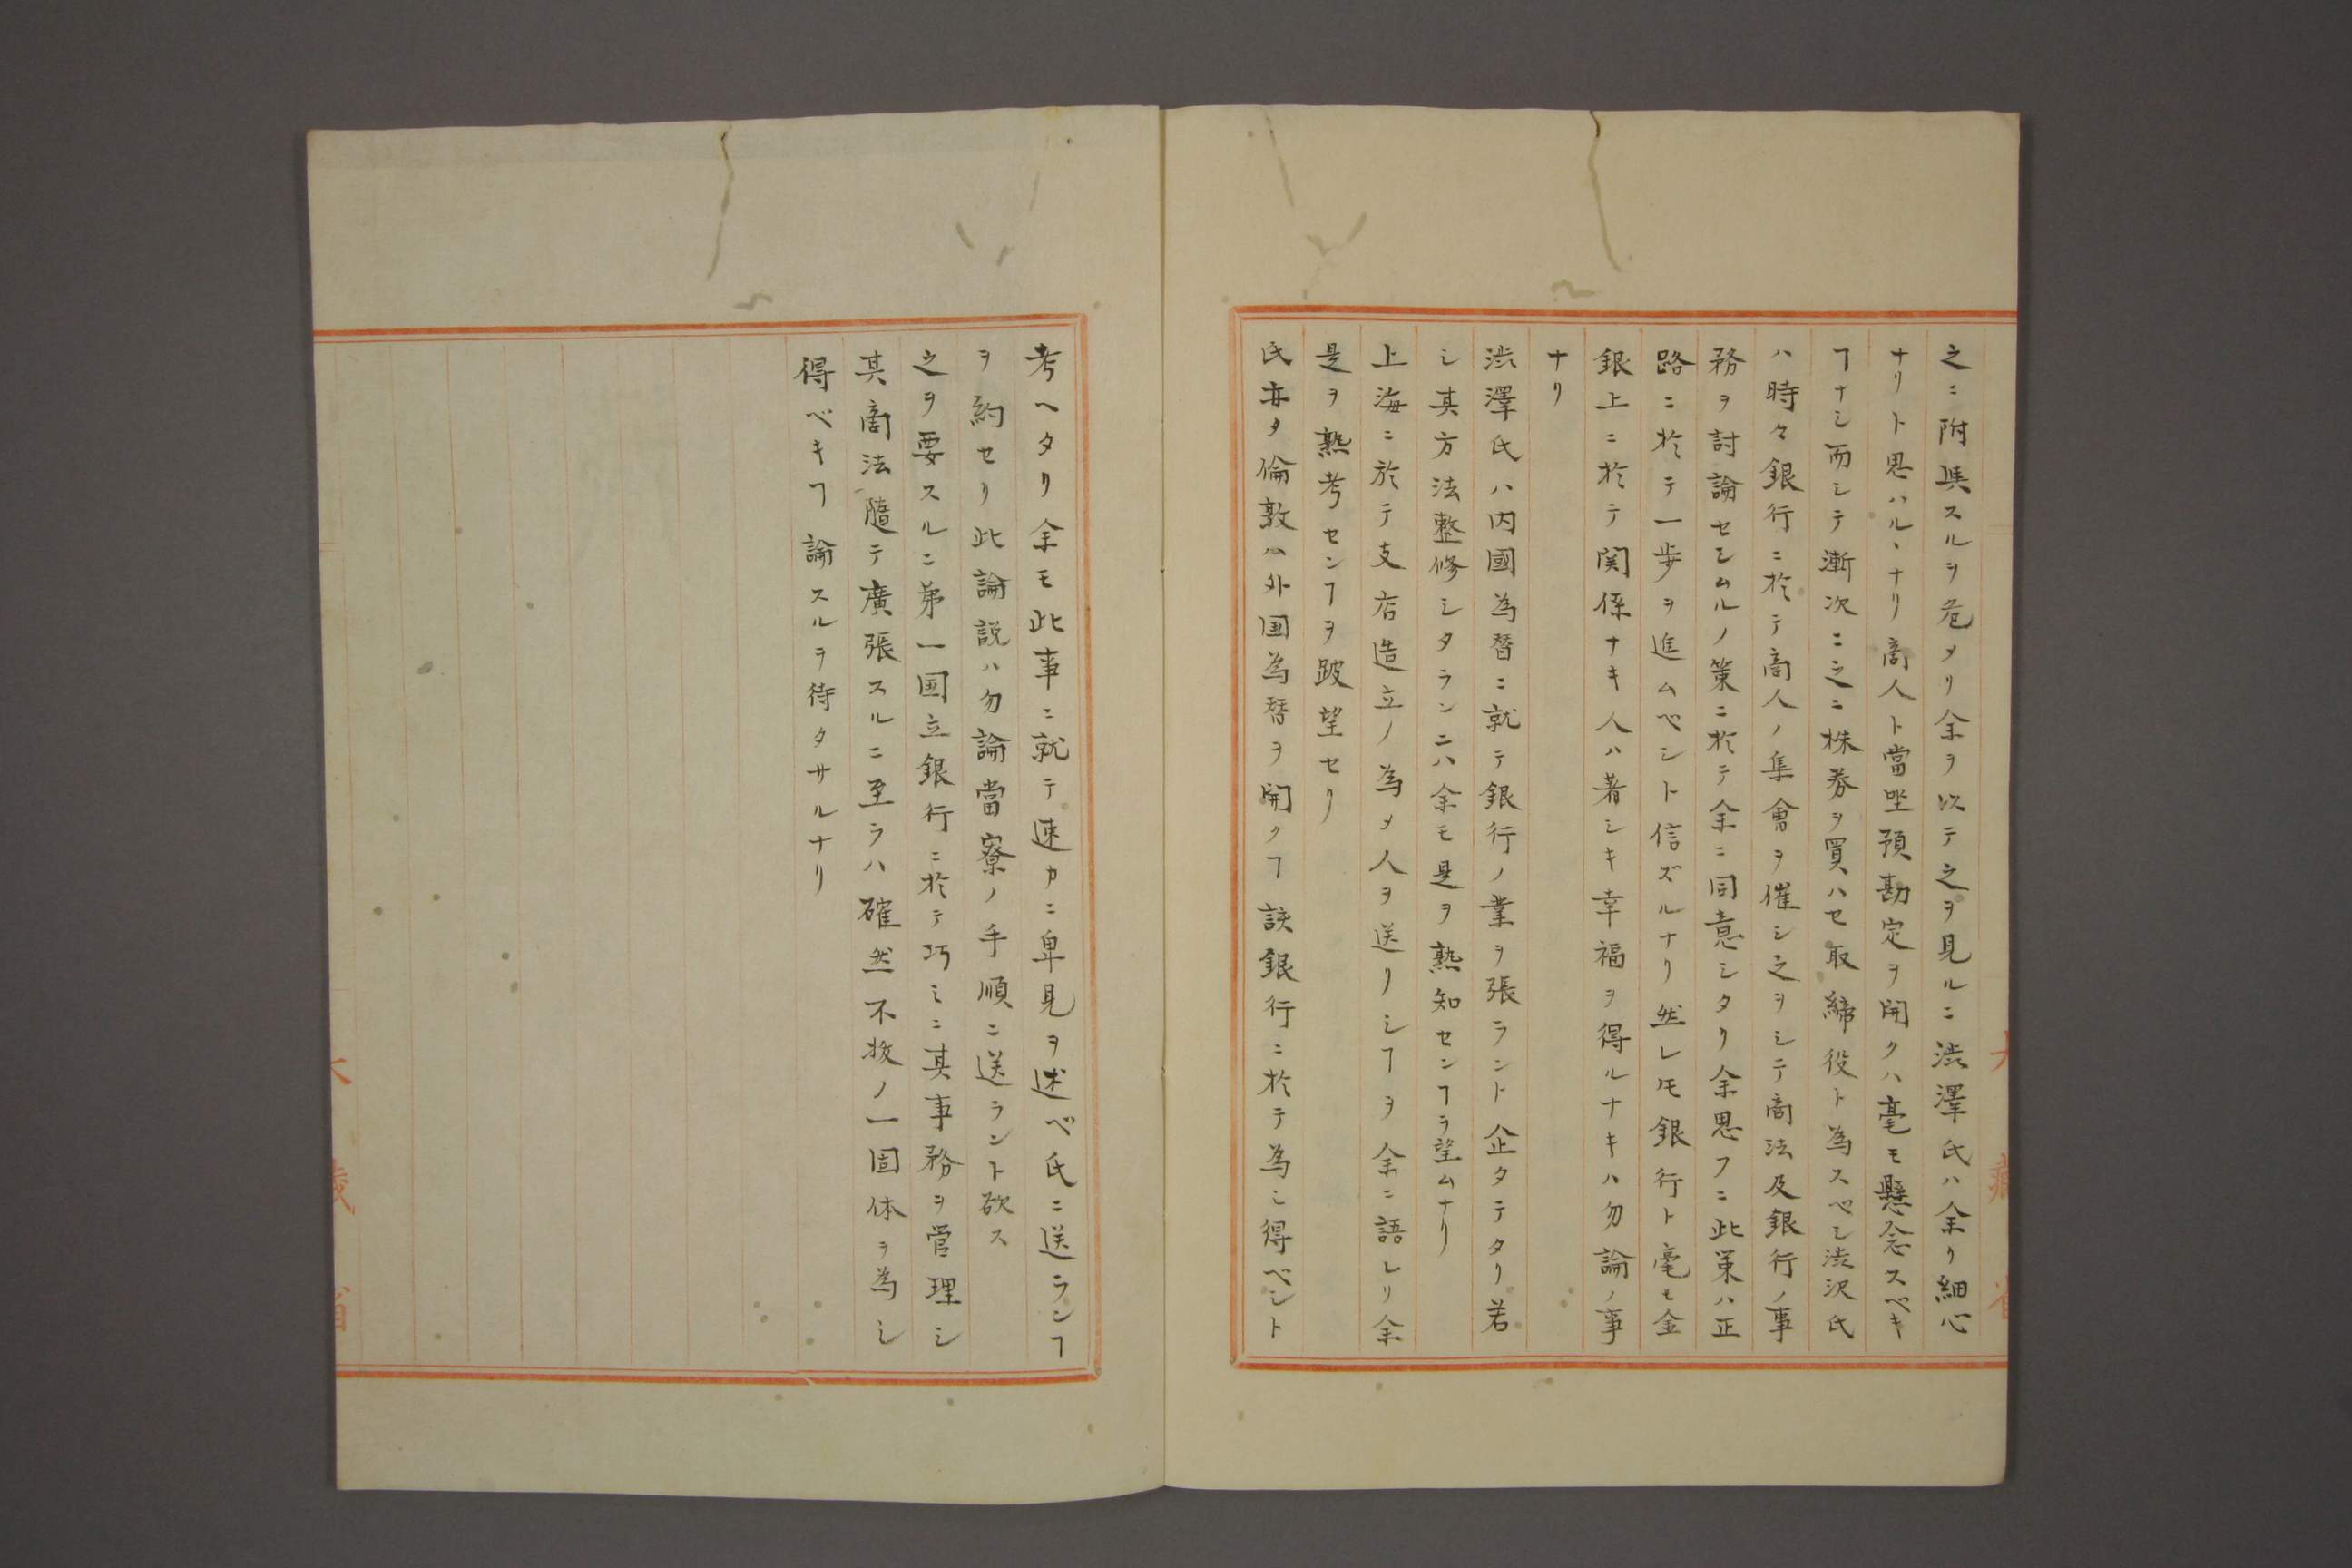 之ニ附與スルヲ危メリ余ヲ以テ之ヲ見ルニ渋澤氏ハ余リ細心
ナリト思ハルヽナリ商人ト當坐預勘定ヲ開クハ毫モ懸念スベキ
ヿナシ而シテ漸次ニ之ニ株券ヲ買ハセ取締役ト為スベシ渋沢氏
ハ時々銀行ニ於テ商人ノ集會ヲ催シ之ヲシテ商法及銀行ノ事
務ヲ討論セシムルノ策ニ於テ余ニ同意シタリ余思フニ此策ハ正
路ニ於テ一歩ヲ進ムベシト信ズルナリ然レ𪜈銀行ト毫モ金
銀上ニ於テ関係ナキ人ハ著シキ幸福ヲ得ルナキハ勿論ノ事
ナリ
渋澤氏ハ内國為替ニ就テ銀行ノ業ヲ張ラント企タテタリ若
シ其方法整修シタランニハ余モ是ヲ熟知センヿヲ望ムナリ
上海ニ於テ支店造立ノ為メ人ヲ送リシヿヲ余ニ語レリ余
是ヲ熟考センヿヲ跂望セリ
氏亦タ倫敦ハ外国為替ヲ開クヿ該銀行ニ於テ為シ得ベシト
考ヘタリ余モ此事ニ就テ速カニ卑見ヲ述ベ氏ニ送ランヿ
ヲ約セリ此論説ハ勿論當寮ノ手順ニ送ラント欲ス
之ヲ要スルニ第一国立銀行ニ於テ巧ミニ其事務ヲ管理シ
其商法隨テ廣張スルニ至ラハ確然不抜ノ一固体ヲ為シ
得ベキヿ論スルヲ待タサルナリ
大藏省
大藏省